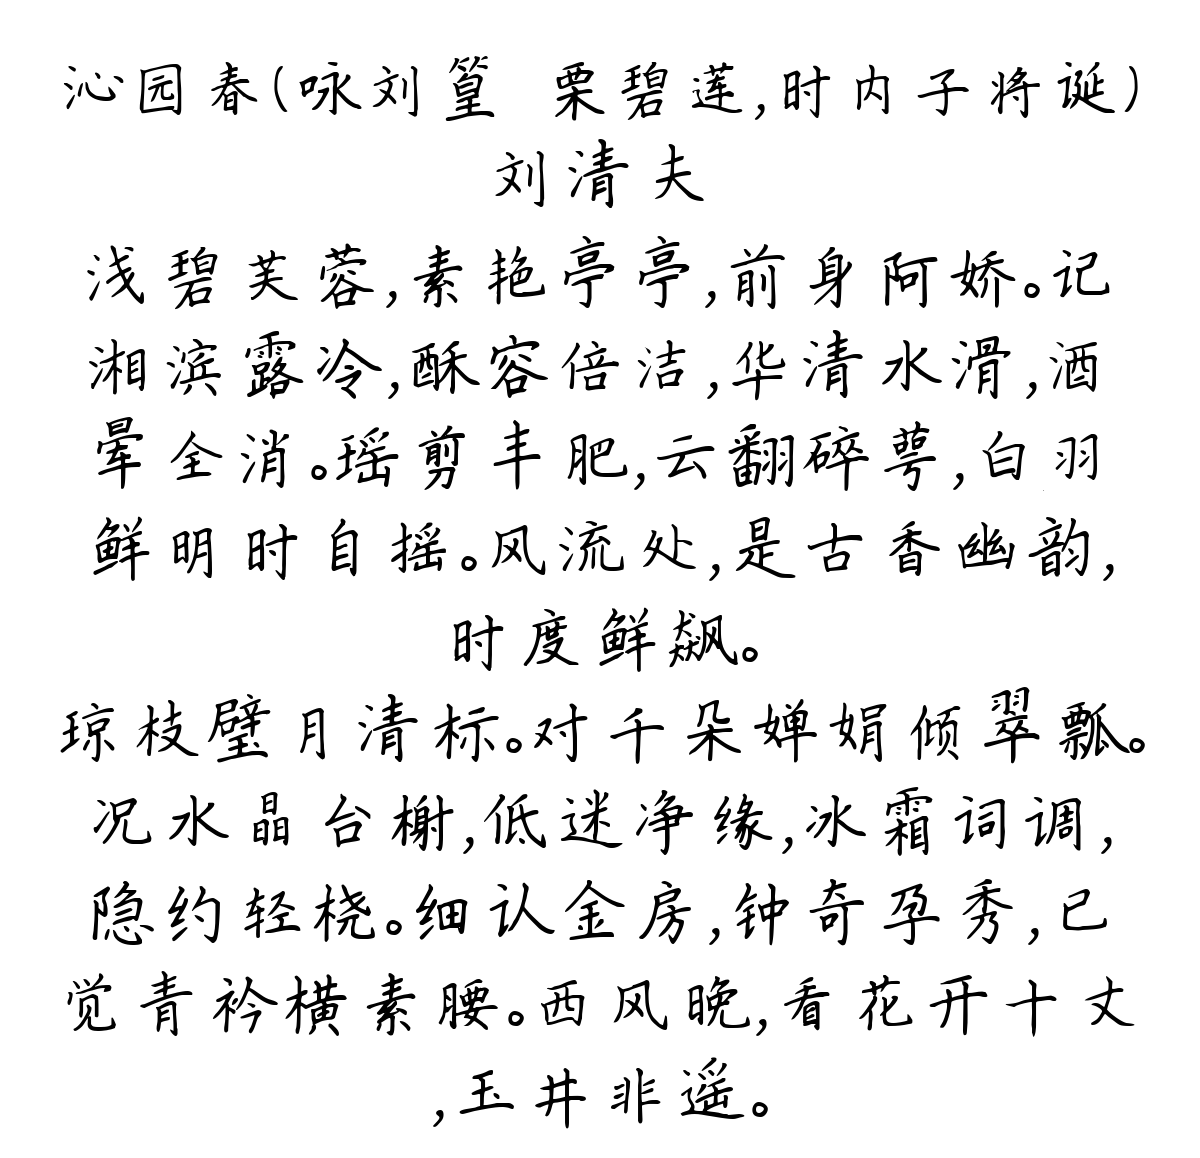 沁园春(咏刘篁 栗碧莲,时内子将诞)
刘清夫
浅碧芙蓉,素艳亭亭,前身阿娇。记
湘滨露冷,酥容倍洁,华清水滑,酒
晕全消。瑶剪丰肥,云翻碎萼,白羽
鲜明时自摇。风流处,是古香幽韵,
时度鲜飙。
琼枝璧月清标。对千朵婵娟倾翠瓢。
况水晶台榭,低迷净缘,冰霜词调,
隐约轻桡。细认金房,钟奇孕秀,已
觉青衿横素腰。西风晚,看花开十丈
,玉井非遥。